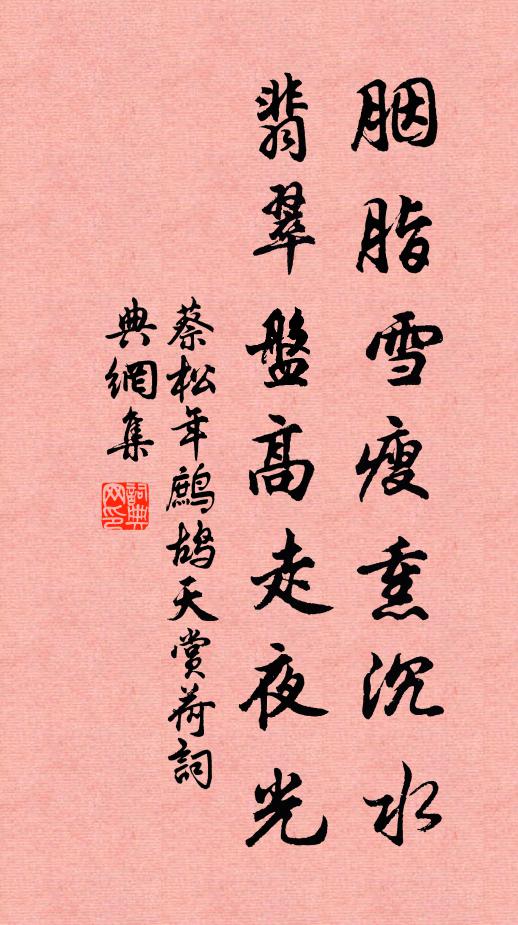 胭脂雪瘦熏沉水
翡翠盤高走夜光
蔡松年鷓鴣天賞荷詞
典網集
詞典網印